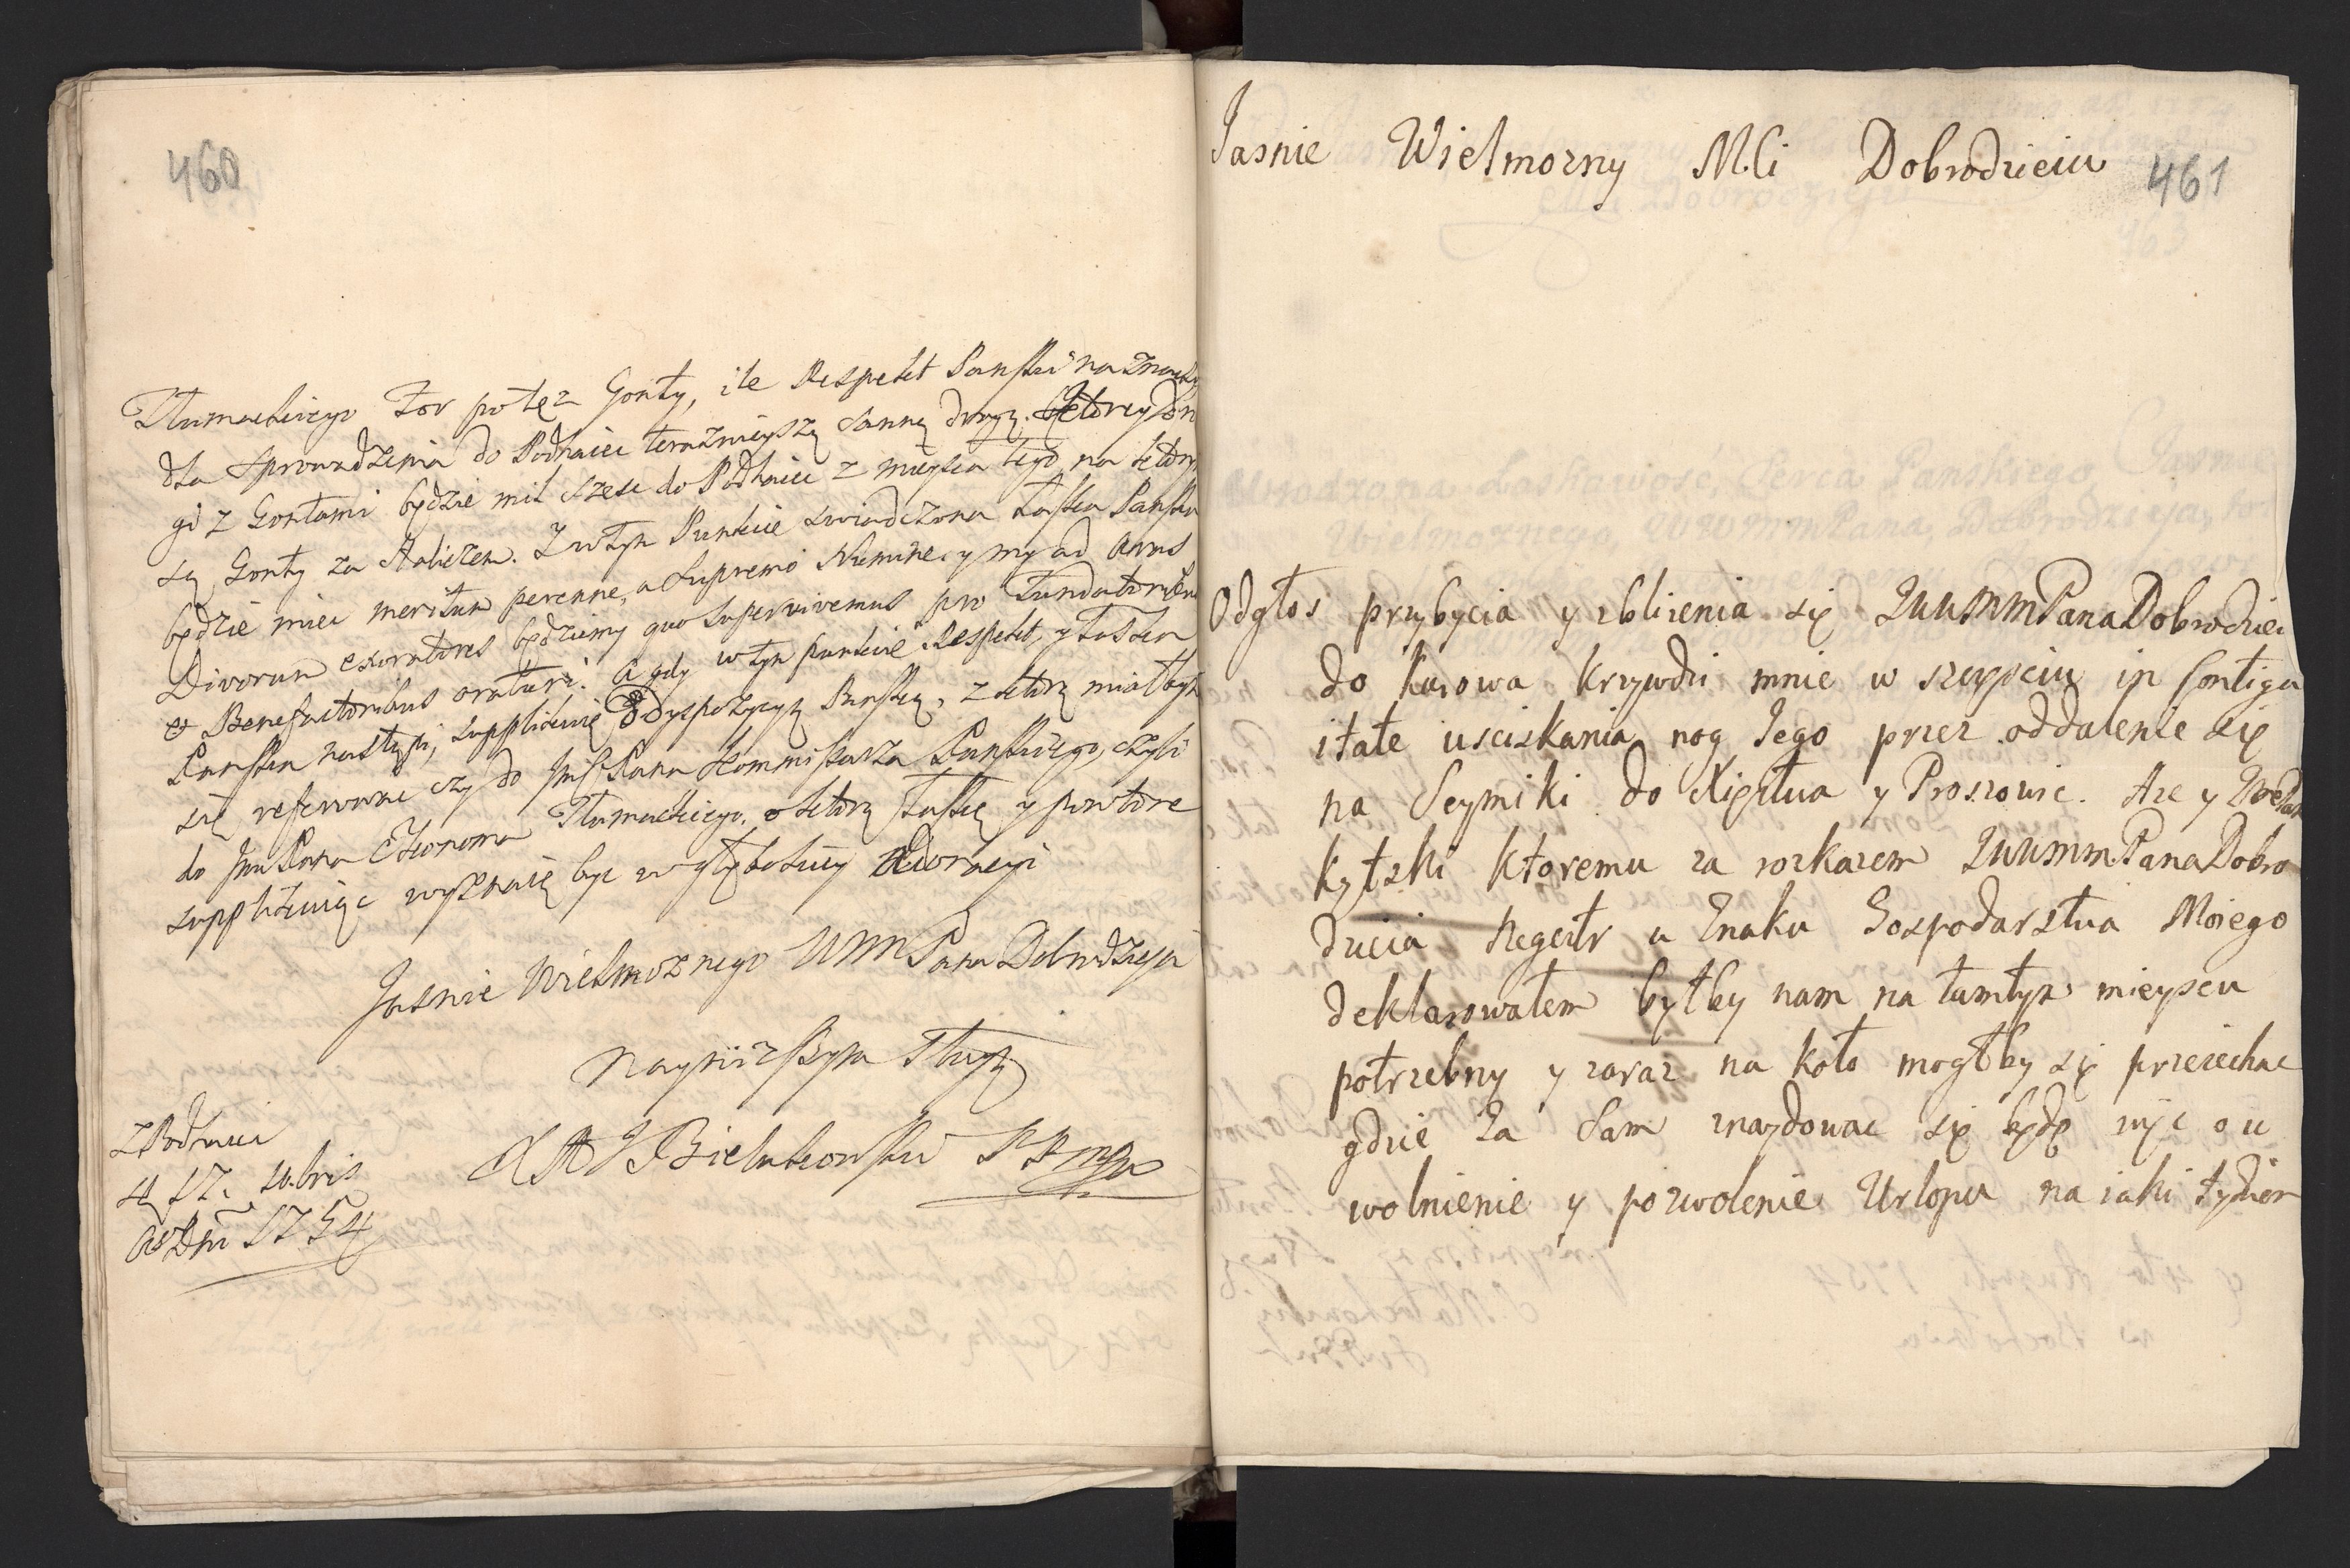 460
Tłumackiego Zor potęz Gonty, ile Respekt Panski naznaczy
dla sprowadzenia do Podhaiec teraznieyszą sanną drogą.
gi z Gontami będzie mil szesc do Podhaiec z mieysca tego na ktory
są Gonty za Haliczem. Z w tym Punkcie swiadczona Łaska Panska
będzie miec meritum perenne, a Supremo Numine, y my ad Aras
Divorum exoratores będziemy quo supervivemus pro Fundatoribus
et Benefactoribus oraturi. A gdy w tym punkcie Respekt, y Łaska
Panska nastąpi, supplikuię o Dyspozycyą Panską, z ktorą miałbym
się referowac czy do Jmsci Pana Kommissarza Panskiego, czyli
do Jmsci Pana Ekonoma Tłumackiego. o ktorą Łaskę y powtore
supplikuiąc wyznaię byc w głębokiey Adoracyi
Jasnie Wielmoznego WMM Pana Dobrodzieja
Nayniższym Sługą
Bielakowski
z Podhaiec
d 17. 10.bris
Ao Dni 1754
461
Jasnie Wielmozny M.Ci Dobrodzieiu
Odgłos przybycia y zblizenia się JWWMMPana Dobrodziei
do Karowa krzywdzi mnie w szczęsciu in Contigu
itate usciskania nog Jego przez oddalenie się
na Seymiki do Xięstwa y Proszowic. Aze y
Kętski ktoremu za rozkazem JWWMMPana Dobro
dzieia Regestr u Znaku Gospodarstwa Moiego
deklarowałem byłby nam na tamtym mieyscu
potrzebny y zaraz na koło mogłby się przeiechac
gdzie Ia Sam znaydowac się będę więc o u
wolnienie y pozwolenie Urlopu na iaki tydzien